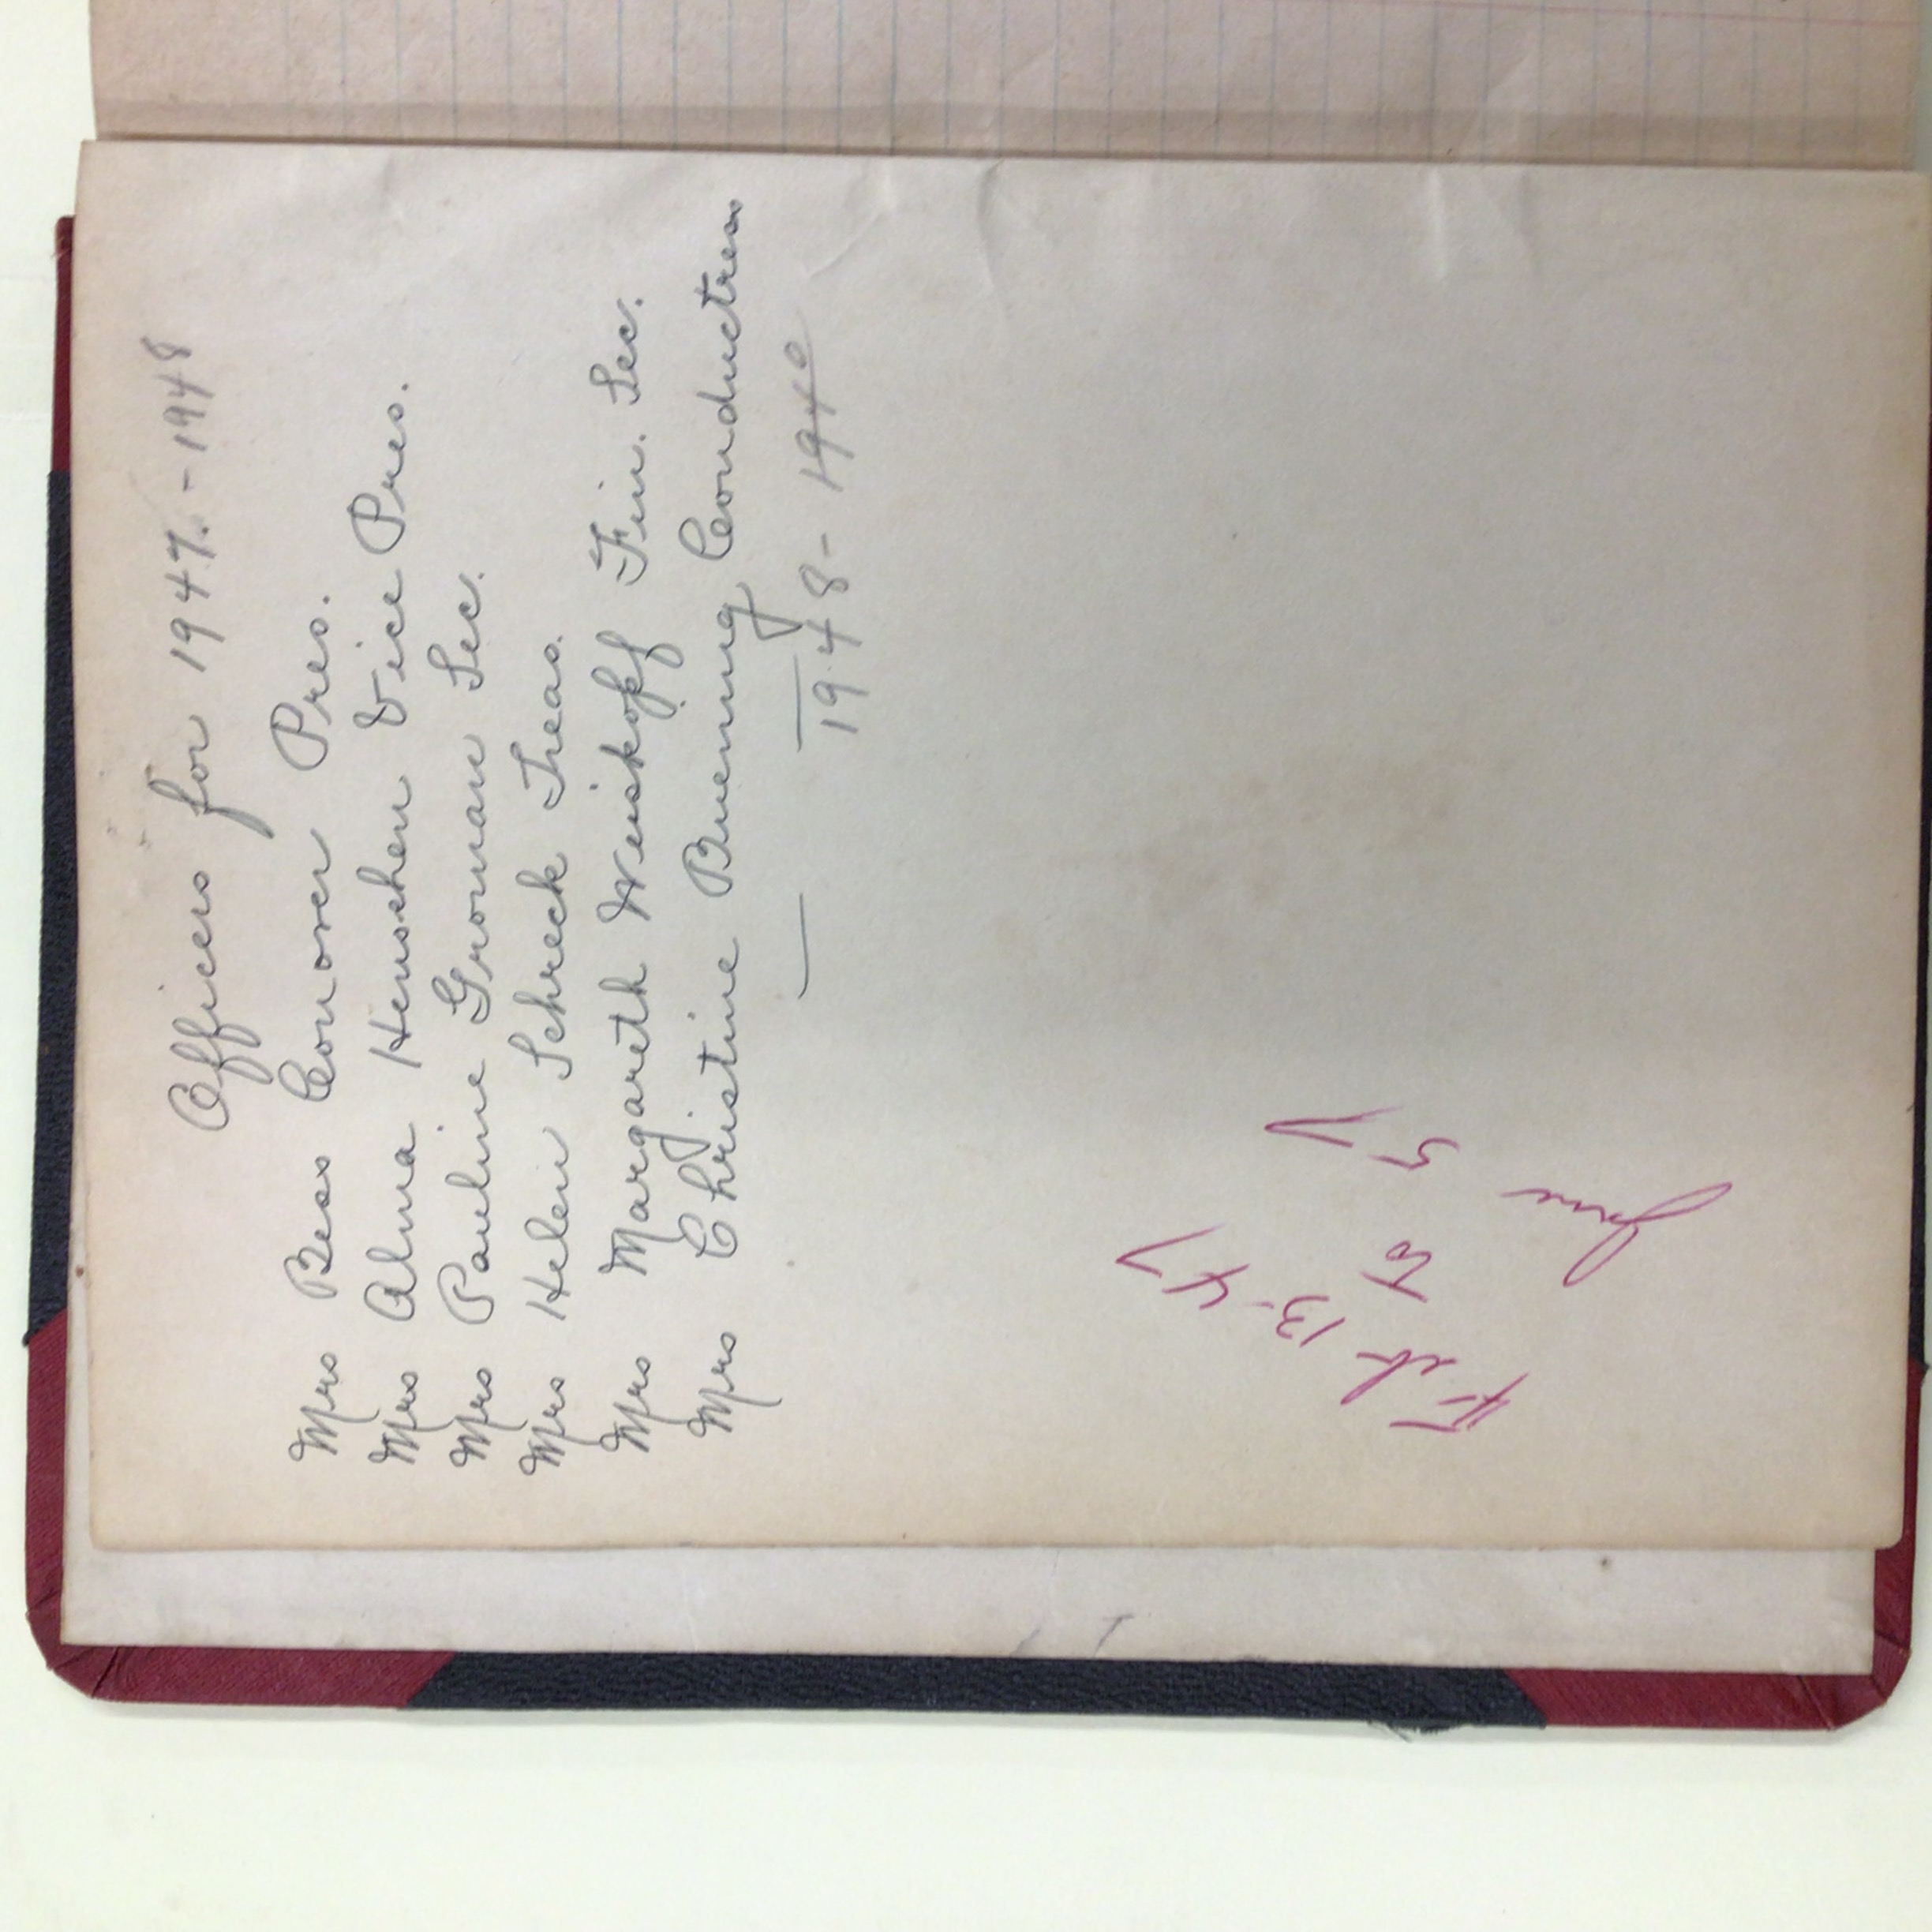 Officers for 1947.-1948
Mrs Bess Conover Pres.
Mrs Alma Henschen Vice Pres.
Mrs Pauline Groman Sec.
Mrs Helen Schreck Treas.
Mrs Margareth Weiskopf Fin. Sec.
Mrs Christine Buening Conductress
1948-
Feb 13-47
to
June 57